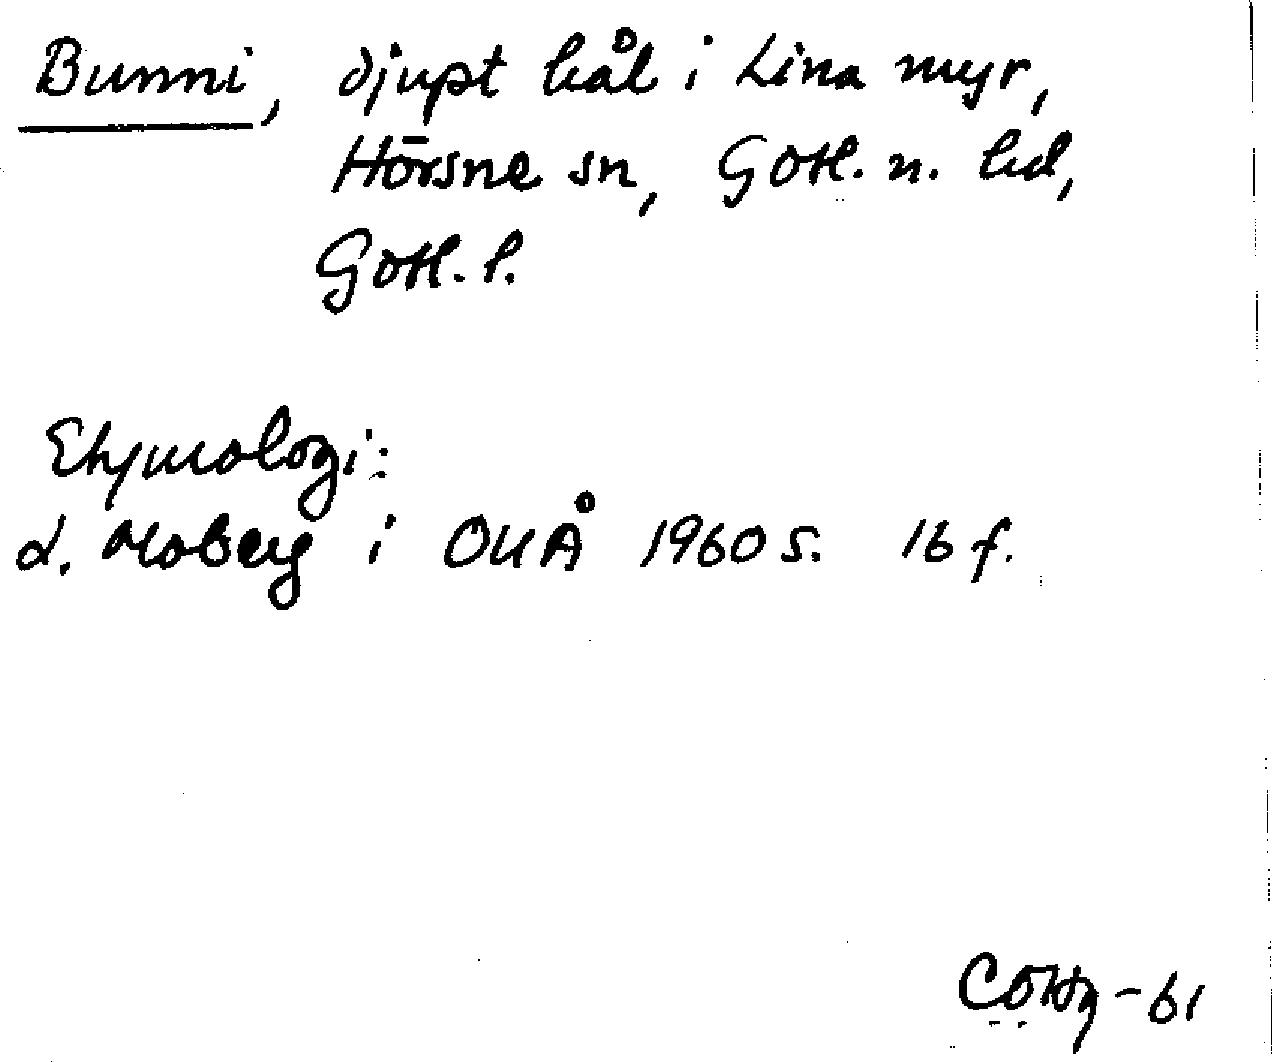 Bunni, djupt hål i Lina myr,
Hörsne sn, Gotl. n. hd,
Gotl. l.
Etymologi:
L. Moberg i OUÅ 1960 s. 16 f.
-61